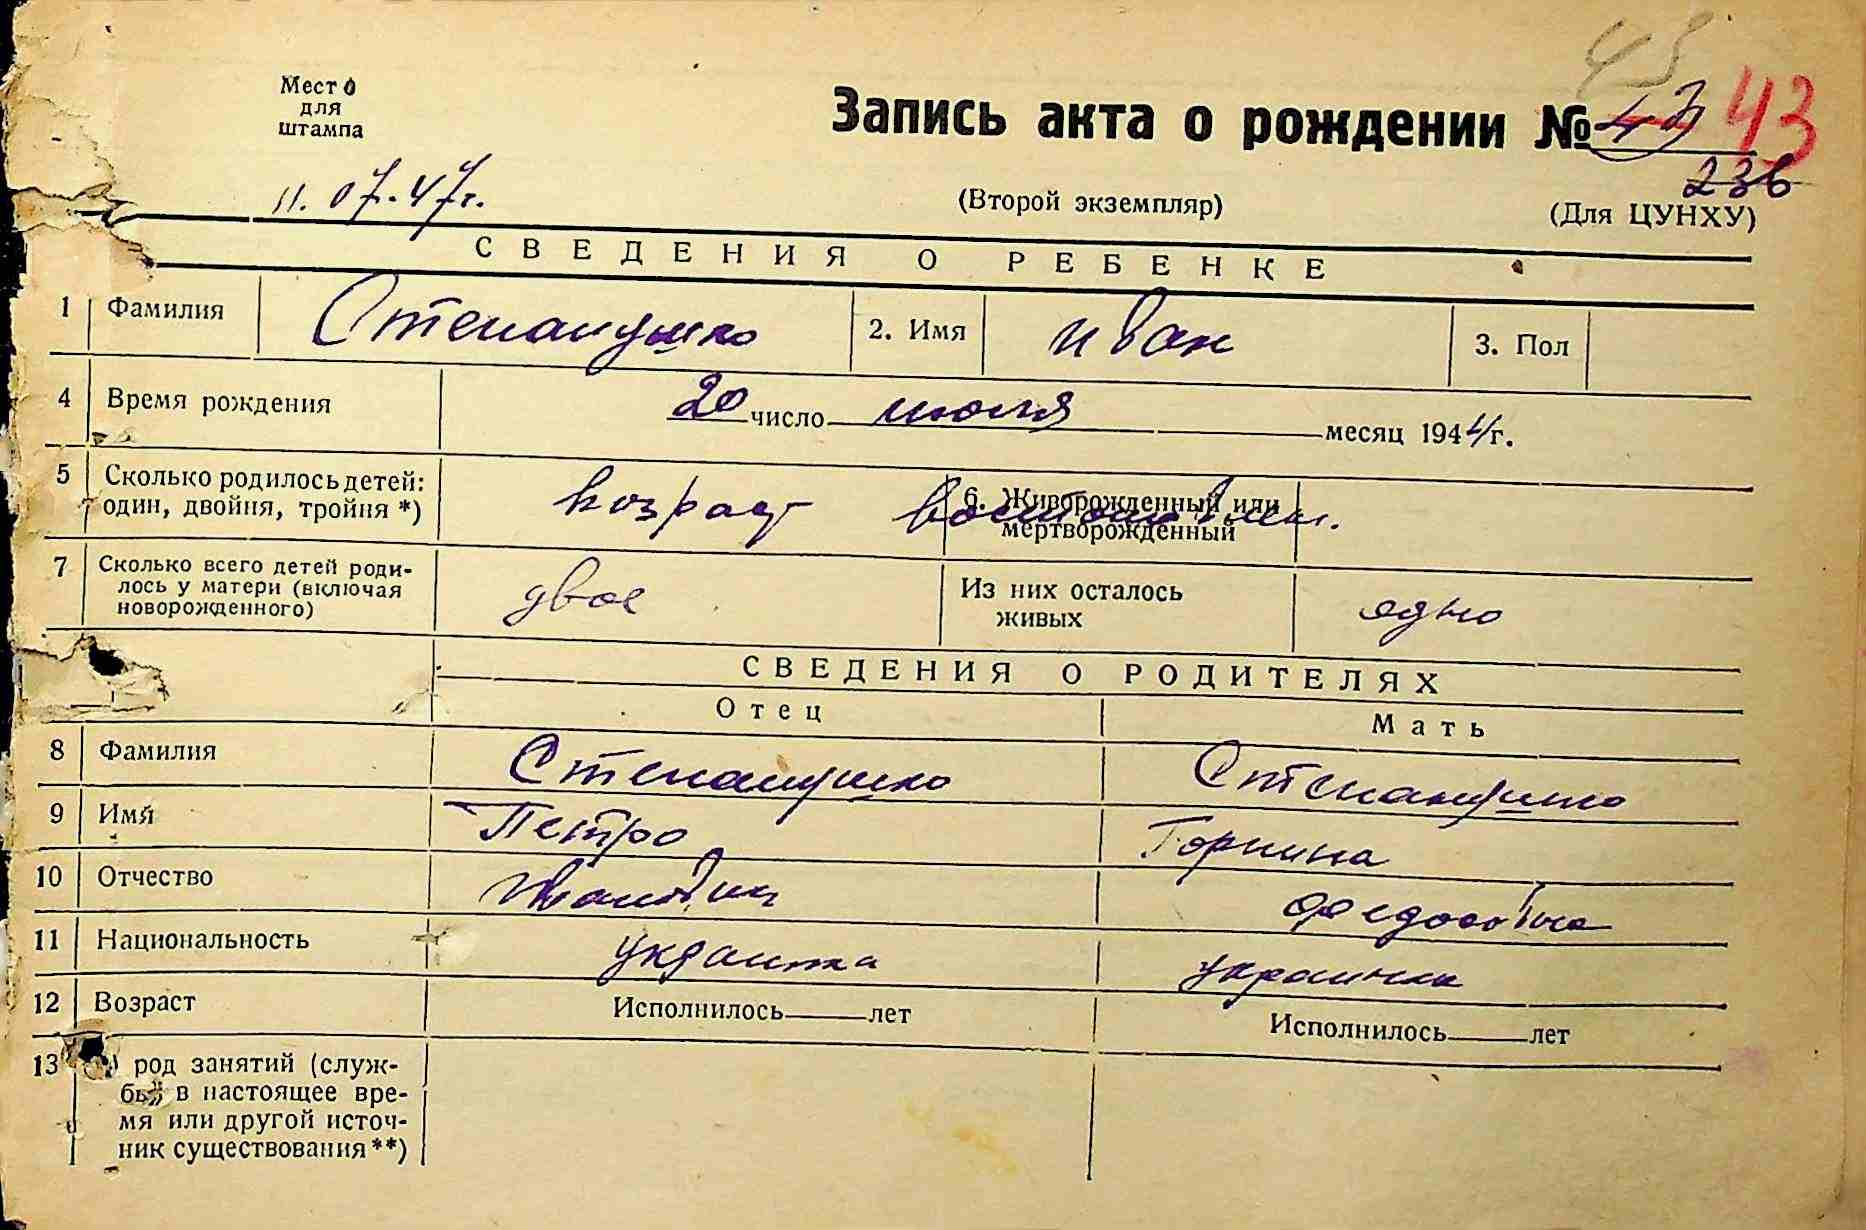 45
Место
для
штампа
Запись акта о рождении № 43 43
236
11.07.47г.
(Второй экземпляр)
(Для ЦУНХУ)
СВЕДЕНИЯ О РЕБЕНКЕ
1 Фамилия Степанушко 2. Имя Иван 3. Пол
4 Время рождения 20 число июля месяц 1944г.
5 Сколько родилось детей: один, двойня, тройня *) возраст 6. Живорожденный или мертворожденный
7 Сколько всего детей роди-
лось у матери (включая
новорожденного) двое Из них осталось живых одно
СВЕДЕНИЯ О РОДИТЕЛЯХ
Отец Мать
8 Фамилия Степанушко Степанушко
9 Имя Петро Горпина
10 Отчество Иванович Федосовна
11 Национальность украинка
12 Возраст Исполнилось лет Исполнилось лет
13 род занятий (служ-
бы) в настоящее вре-
мя или другой источ-
ник существования **)